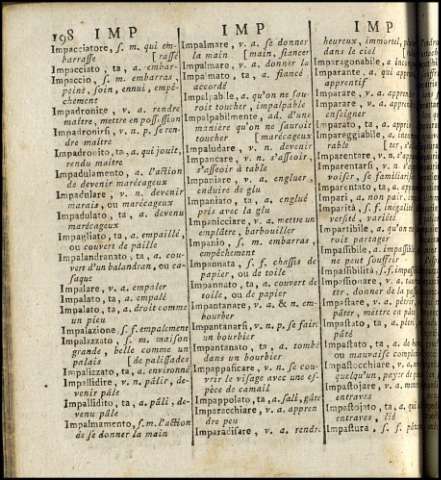 198 IMP
Impacciatore, ſ. m. qui em-
barraſſe [raſſé
Impacciato, ta, a. embar-
Impaccio, ſ. m. embarras,
peine, ſoin, ennui, empê-
chement
Impadronire, v. a. rendre
maître, mettre en poſſeſſion
Impadronirſi, v. n. p. ſe ren-
dre maître
Impadronito, ta, a. qui jouit,
rendu maître
Impadulamento, ſ. m. l'action
de devenir marécageux
Impadulare, v. n. devenir
marais, ou marécageux
Impadulato, ta, a. devenu
marécageux
Impagliato, ta, a. empaillé,
ou couvert de paille
Impalandranato, ta, a. cou-
vert d'un balandran, ou ca-
ſaque
Impalare, v. a. empaler
Impalato, ta, a. empalé
Impalato, ta, a. droit comme
un pieu
Impalazione, ſ. f. empalement
Impalazzato, ſ. m. maiſon
grande, belle comme un
palais [de paliſſades
Impalizzato, ta, a. environné
Impallidire, v. n. pâlir, de-
venir pâle
Impallidito, ta, a. pâli, de-
venu pâle
Impalmamento, ſ. m. l'action
de ſe donner la main
IMP
Impalmare, v. a. ſe donner
la main [main, fiancer
Impalmato, ta, a. fiancé
accordé
Impalpabile, a. qu'on ne ſau-
roit toucher, impalpable
Impalpabilmente, ad. d'une
maniere qu'on ne ſauroit
toucher [marécageux
Impaludare, v. n. devenir
Impancare, v. n. s'aſſeoir,
s'aſſeoir à table
Impaniare, v. a. engluer,
enduire de glu
Impaniato, ta, a. englué
pris avec la glu
Impannicciare, v. a. mettre un
emplâtre, barbouiller
Impazio, ſ. m. embarras,
empêchement
Impannata, ſ. f. chaſſis de
papier, ou de toile
Impannato, ta, a. couvert de
toile, ou de papier
Impantanare, v. a. & n. em-
bourber
Impantanarſi, v. n. p. ſe faire
un bourbier
Impantanato, ta, a. tombé
dans un bourbier
Impappaficare, v. n. ſe cou-
vrir le viſage avec une eſ-
pèce de camail
Impappolato, ta, a. ſali, gâté
Imparacchiare, v. a. appren-
dre peu
Imparadiſare, v. a. rendre
IMP
heureux, immortel,
dans le ciel
Imparagonabile, a
Imparante, a. qui
apprentif
Imparare, v. a.
Imparare, v. a.
enſeigner
Imparato, ta, a.
Impareggiabile, a.
rable
Imparentare, v. n.
Imparentarſi, v. n.
ſe familiar
Imparentato, ta, a.
Impari, a. non pair,
Imparità, ſ. f. inégalité
verſité, variété
Impartibile, a. qu'on
roit partager
Impaſſibile, a.
ne peut ſouffrir
Impaſſibilità, ſ. f.
Impaſſionare, v. a.
ter, donner de la
Impaſtare, v. a.
mettre en pâte
Impaſtato, ta, a.
pâté
Impaſtato, ta, de
ou mauvaiſe
Impaſtocchiare, v. a.
quelqu'un, payer de
Impaſtojare, v. a.
entraves
Impaſtojato, ta, a.
entraves, lié
Impaſtura, ſ. f.